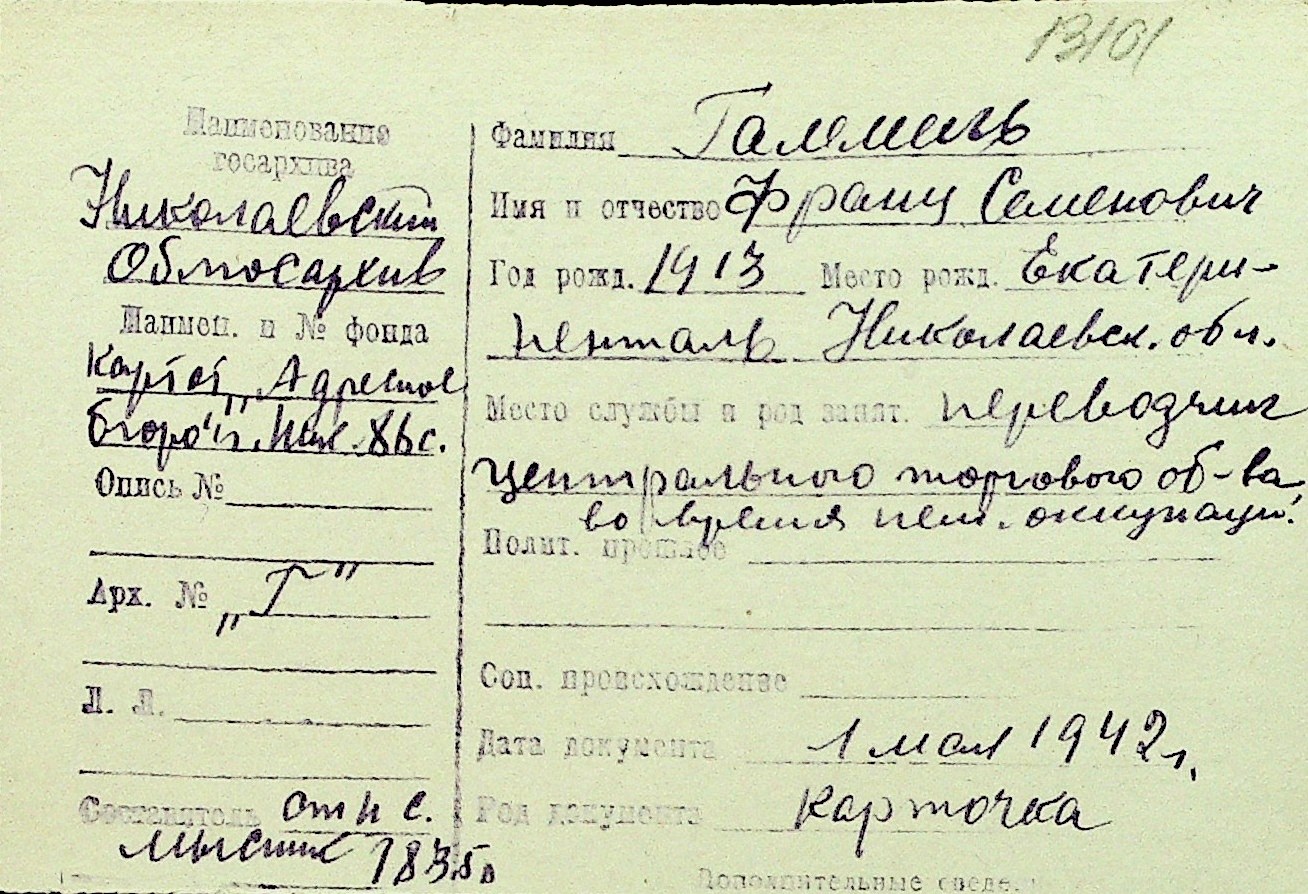 13101
Наименование
госархива
Николаевский
Облгосархив
Наимен. и № фонда
Картот „Адресное
бюро" г. Ник.
Опись №
Арх. № „Г"
Л. Л.
Составитель ст н с.
Фамилия
Имя и отчество Франц Семенович
Год рожд. 1913 Место рожд. Екатери-
ненталь Николаевск. обл.
Место службы и род занят. переводчик
центрального торгового об-ва
во время нем. оккупации.
Полит. прошлое
Соц. происхождение
Дата документа 1 мая 1942 г.
Род документа карточка
Дополнительные сведе.